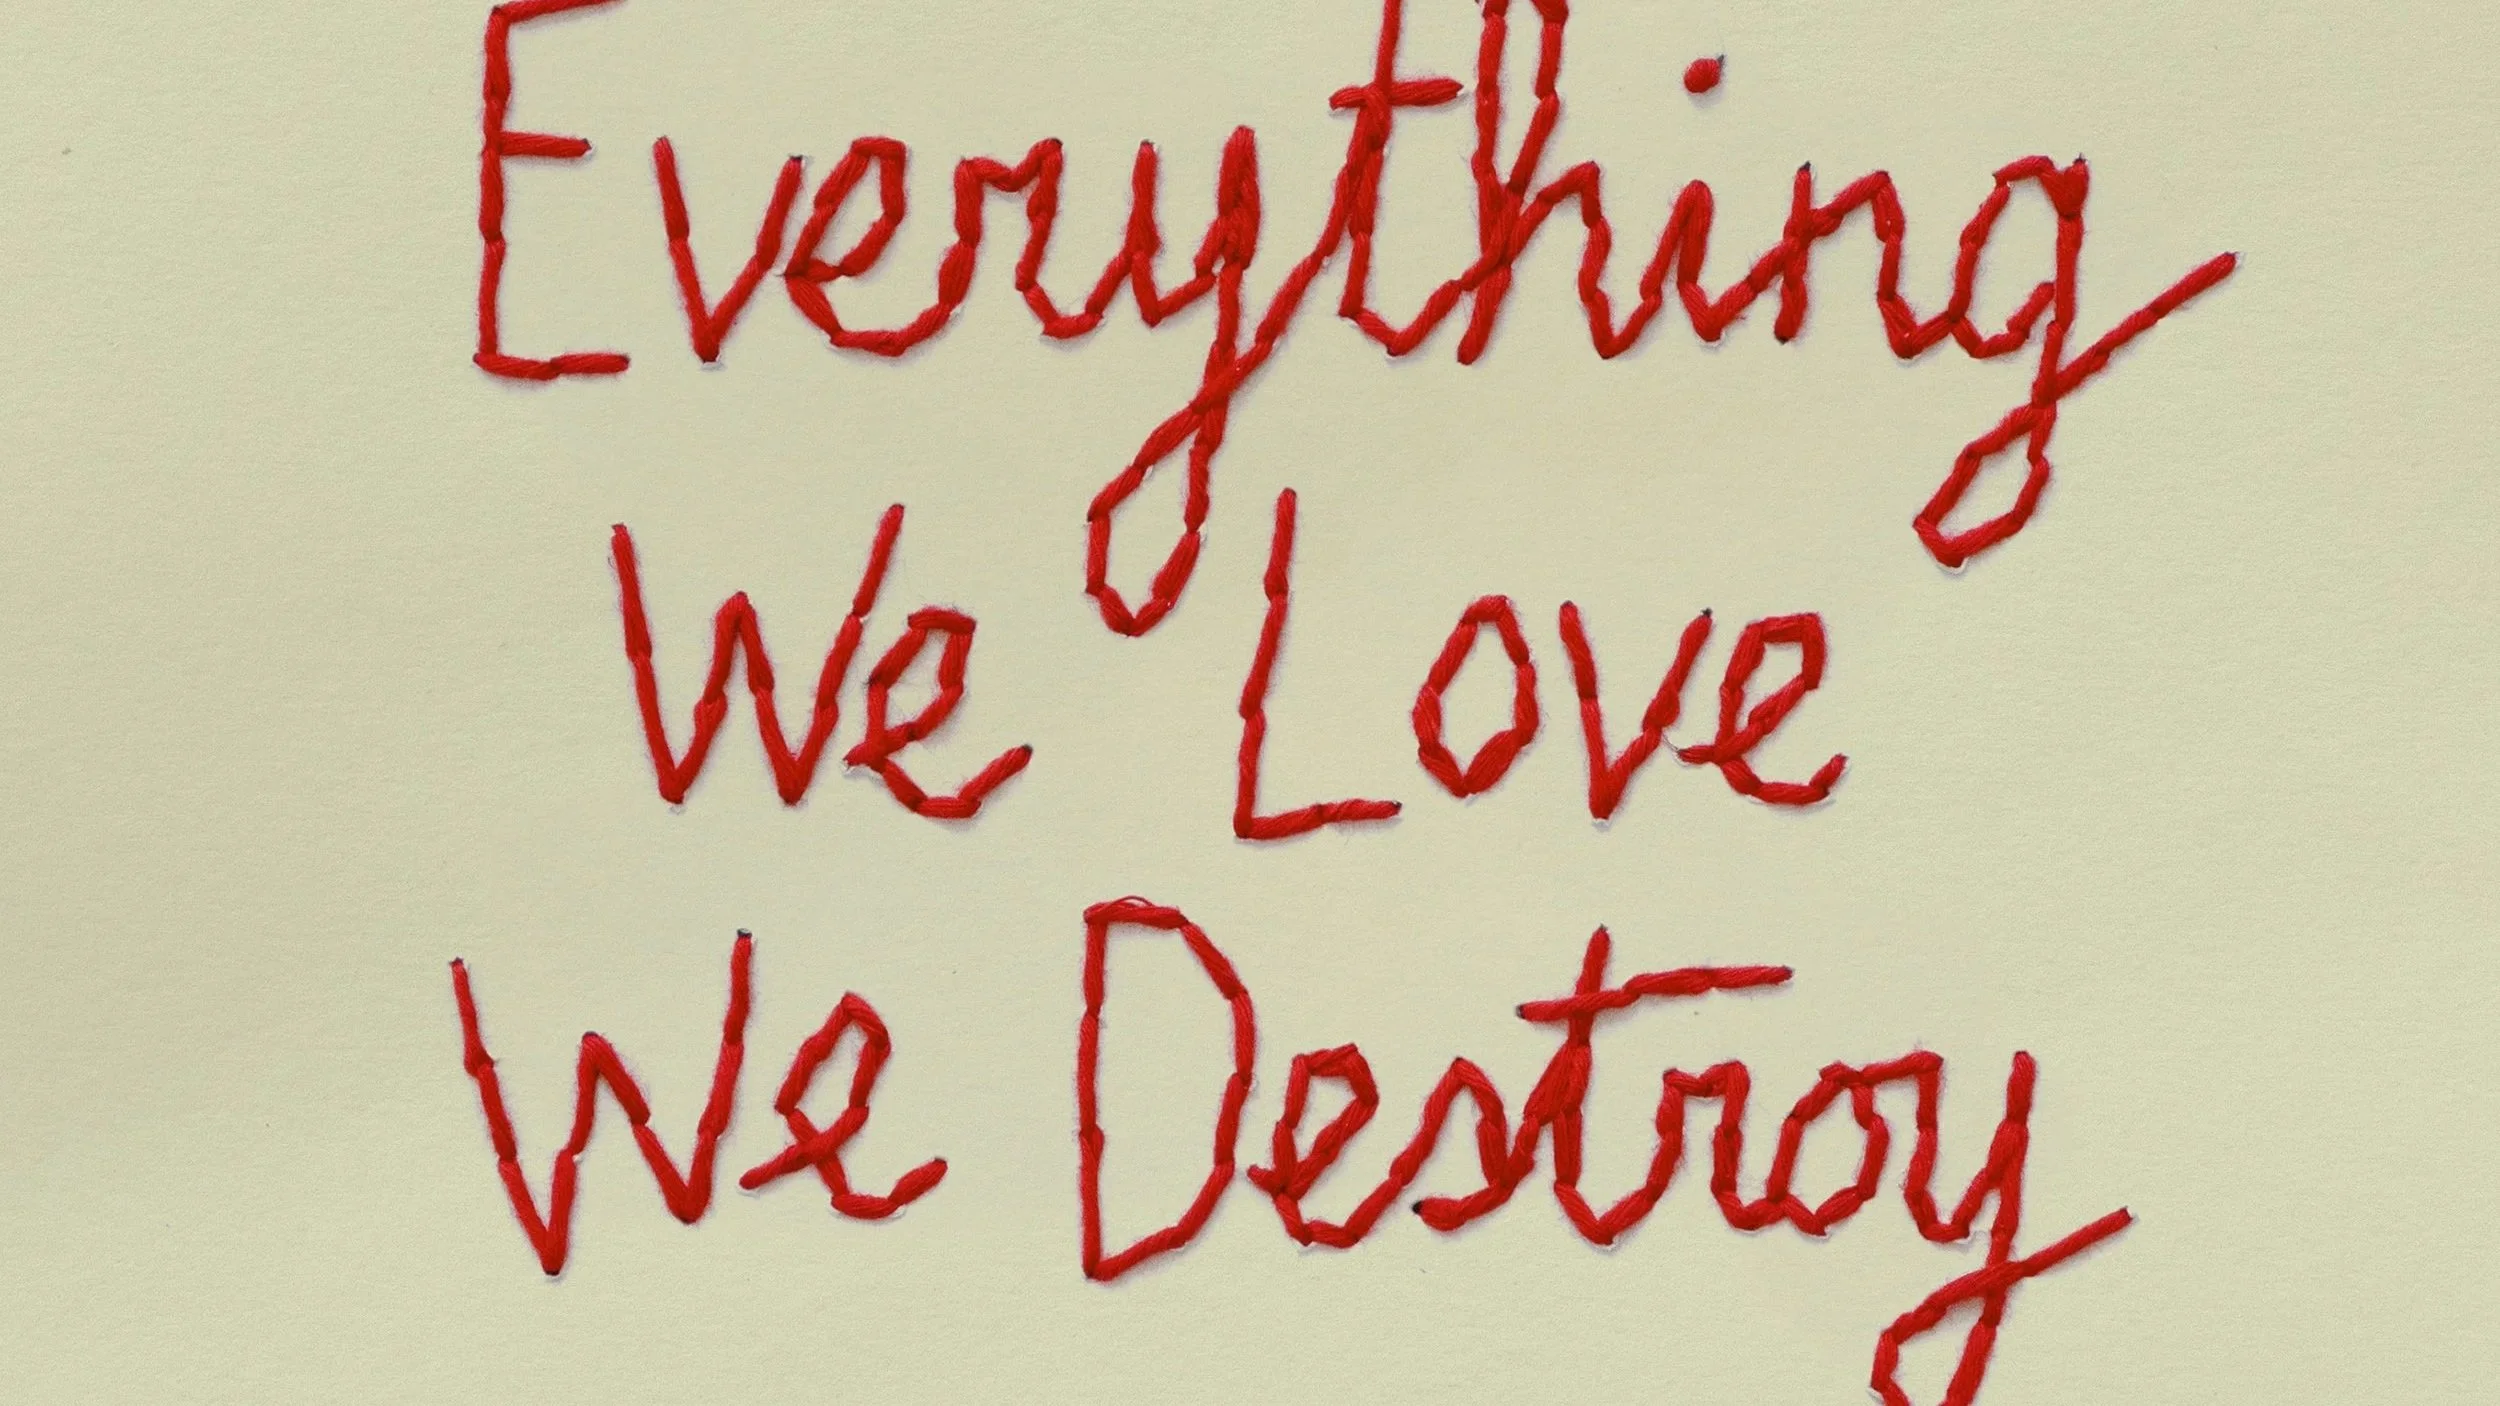 Everything
We Love
We Destroy